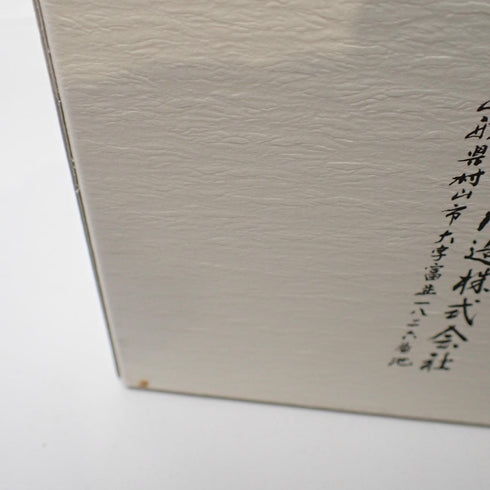 造株式会社
山形県村山市大字富並一八二六番地